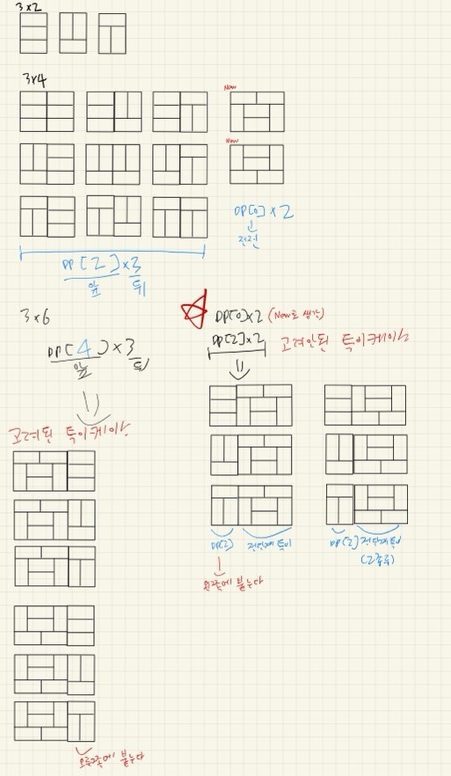 3x2
3x4
New
New
DP[0] x 2
전전
DP[2] x 3
앞 뒤
3x6
DP[4] x 3
앞 뒤
DP[0] x 2 (New로 생김)
DP[2] x 2 고려안된 특이케이스
고려된 특이케이스
DP[2] 전단계 특이
DP[2] 전단계 특이
(2종류)
왼쪽에 붙는다
오른쪽에 붙는다